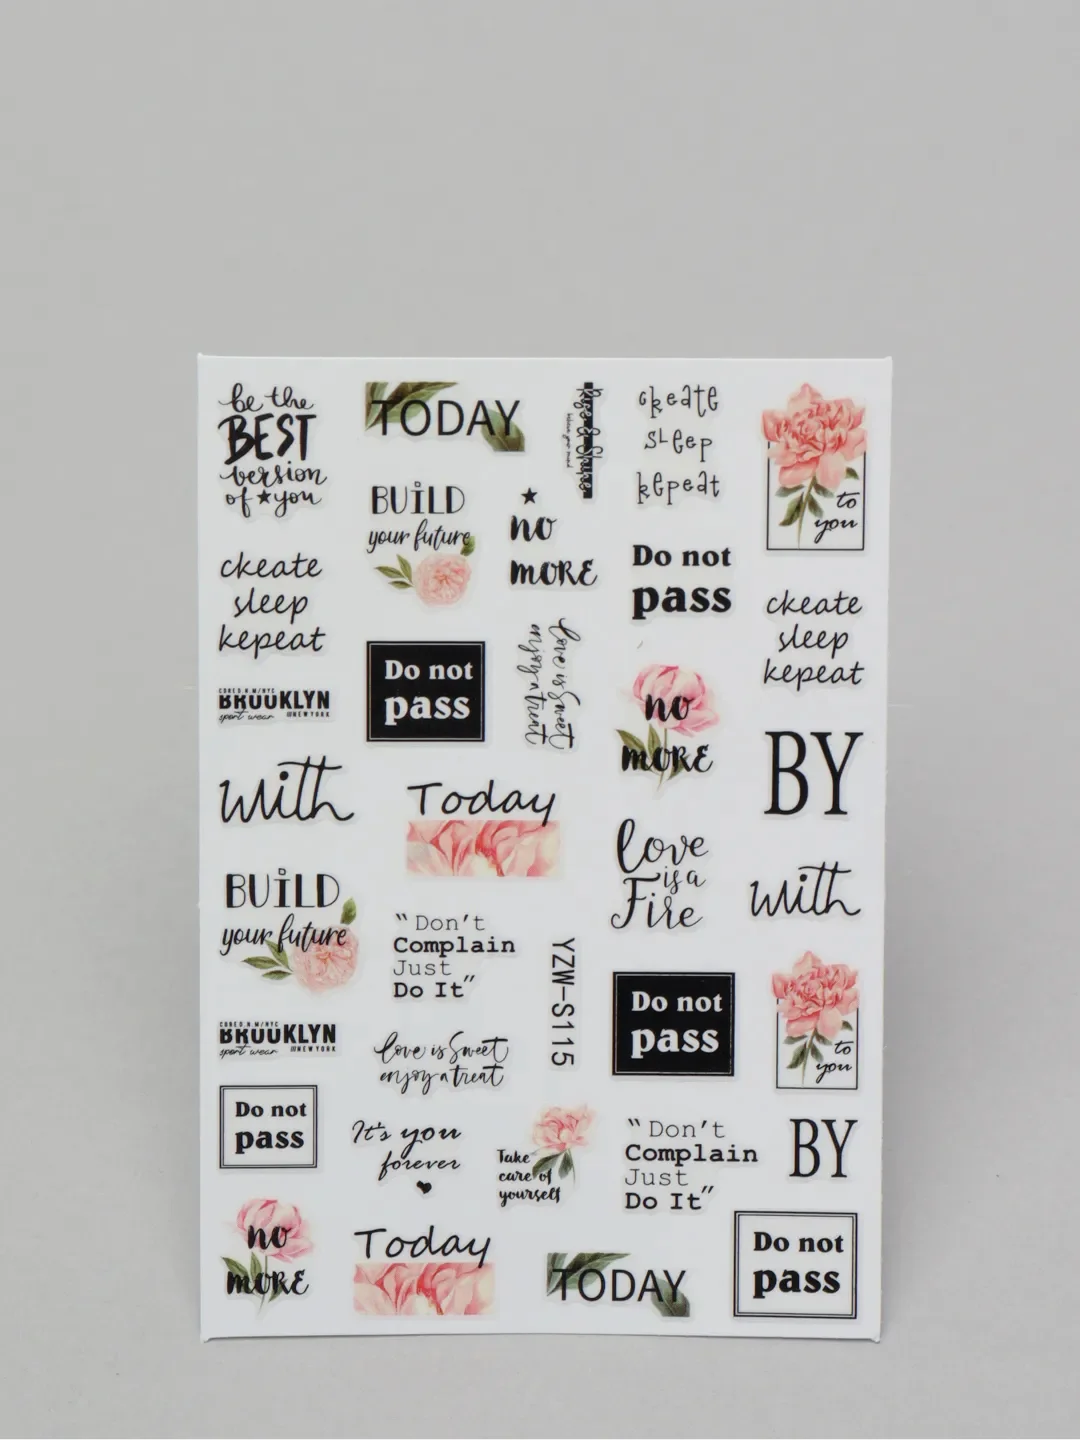 be the
BEST
version
of ★ you
TODAY
cкeate
sleep
кepeat
to
you
BUiLD
your future
★
no
MORE
Do not
pass
cкeate
sleep
кepeat
cкeate
sleep
кepeat
BROOKLYN
sport wear
NEW YORK
Do not
pass
love is Sweet
enjoy a treat
no
MORE
BY
with
Today
love
is a
Fire
with
BUiLD
your future
“Don't
Complain
Just
Do It”
YZW-S115
Do not
pass
to
you
BROOKLYN
sport wear
NEW YORK
love is Sweet
enjoy a treat
Do not
pass
It's you
forever
Take
care of
yourself
“Don't
Complain
Just
Do It”
BY
no
MORE
Today
TODAY
Do not
pass